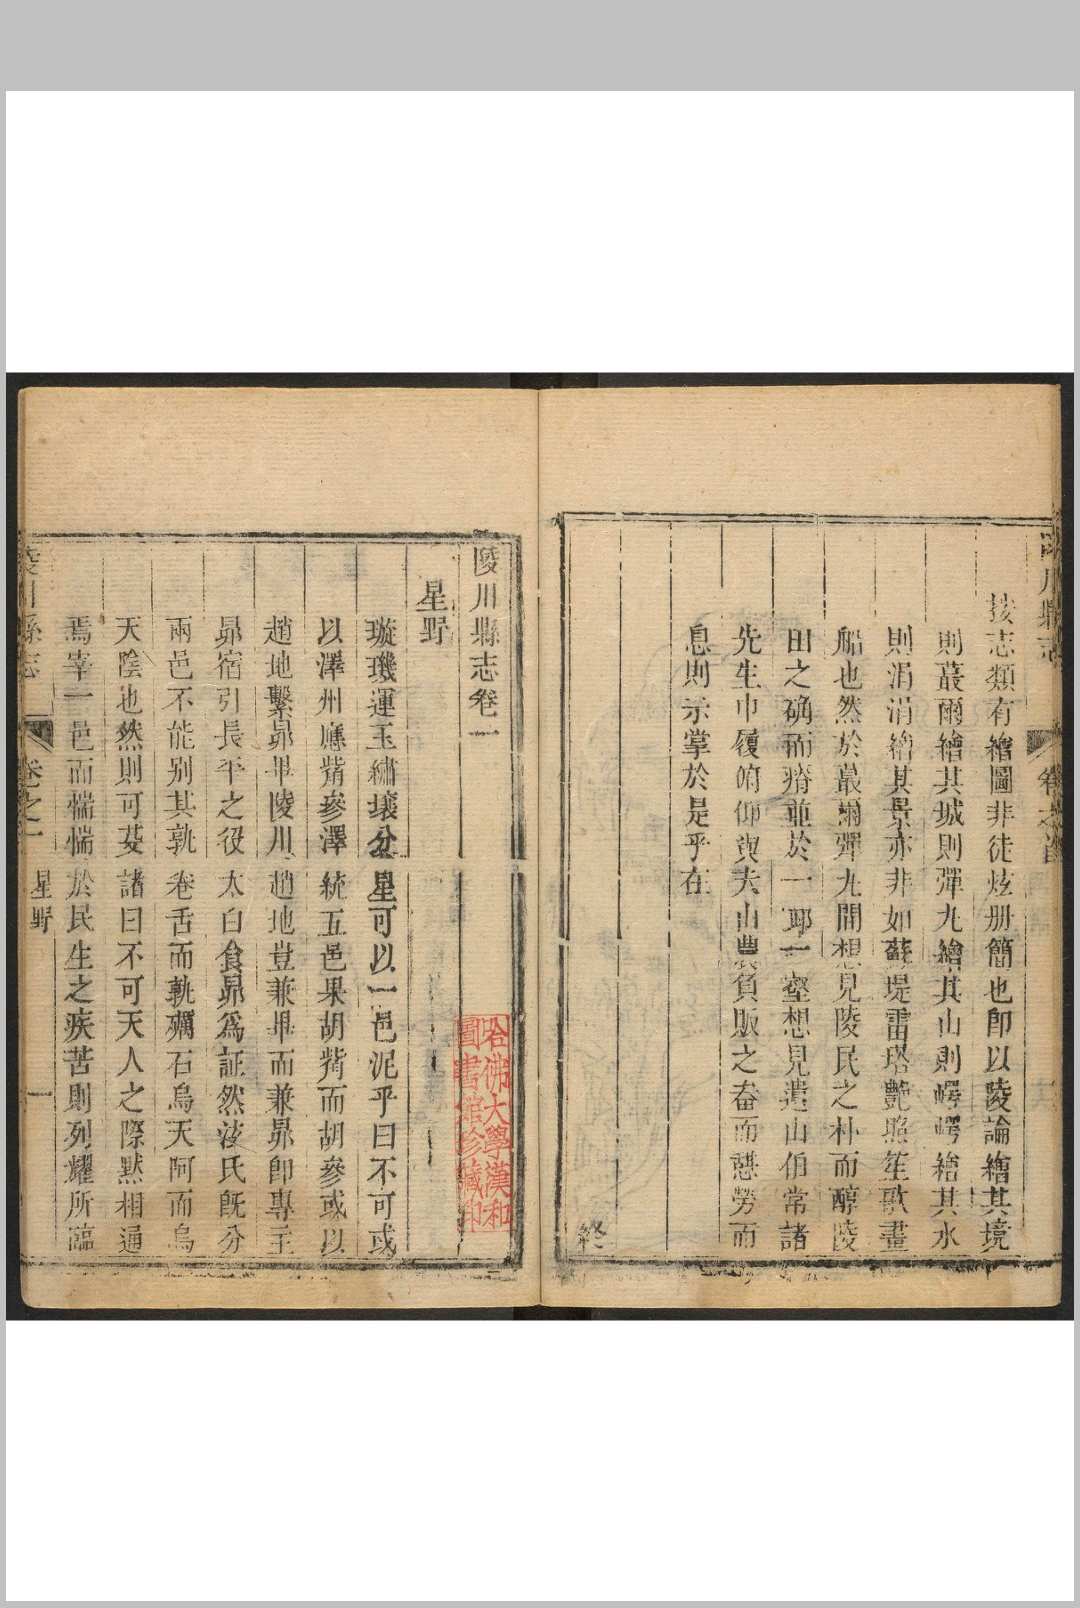 川縣志
卷之首
按志類有繪圖非徒炫册簡也卽以陵論繪其境
則蕞爾繪其城則彈丸繪其山則崿崿繪其水
則涓涓繪其景亦非如蘇堤雷塔艷照笙歌畫
船也然於蕞爾彈丸間想見陵民之朴而醇陵
田之确而瘠並於一耶一壑想見遺山伯常諸
先生巾履俯仰與夫山農負販之畚而憇勞而
息則示掌於是乎在
終
陵川縣志卷一
星野
璇璣運玉繡壤分星可以一邑泥乎曰不可或
以澤州應觜參澤統五邑果胡觜而胡參或以
趙地繫昴畢陵川趙地豈兼畢而兼昴卽專主
昴宿引長平之役太白食昴爲証然泫氏旣分
兩邑不能别其孰卷舌而孰礪石烏天阿而烏
天陰也然則可芟諸曰不可天人之際黙相通
焉宰一邑而惴惴於民生之疾苦則列耀所臨
陵川縣志
卷之一
星野
一
哈佛大學漢和
圖書館珍藏印